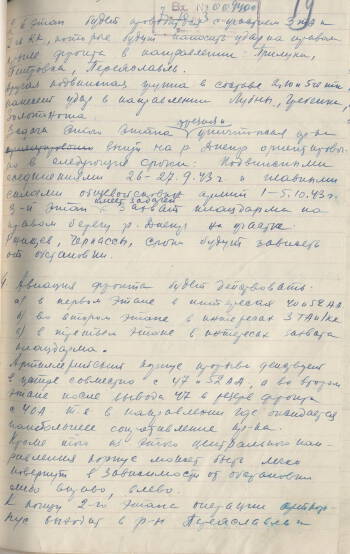 Вх № 009400
19
2й этап будет проводиться с участием 3 ТА
и КК, которые будут наносить удар на правом
крыле фронта в направлении Прилуки,
Пирятин, Переяславль.
Другая подвижная группа в составе 2, 10 и 5
нанесет удар в направлении Лубны, Гребенка,
Золотоноша.
Задача этого этапа уничтожая пр-ка
выйти на р. Днепр
в следующие сроки: Подвижными
соединениями 26-27.9.43 г и главными
силами общевойсковых армий 1-5.10.43 г.
3-й этап имеет задачей захват плацдарма на
правом берегу р. Днепр на участке:
Ржищев, Черкассы, сроки будут зависеть
от обстановки.
4. Авиация фронта будет действовать:
а) в первом этапе в интересах 40 и 52 А
б) во втором этапе в интересах 3 ТА и КК
в) в третьем этапе в интересах захвата
плацдарма.
Артиллерийский корпус прорыва действует
в центре совместно с 47 и 52 АА, а во втором
этапе после вывода 47 в резерв фронта
с 40А т.е. в направлении где ожидается
наибольшее сопротивление пр-ка.
Кроме того из этого центрального нап-
равления корпус может быть легко
повернут в зависимости от обстановки
либо вправо, влево.
К концу 2-го этапа операции арткор-
пус выходит в р-н Переяславль и